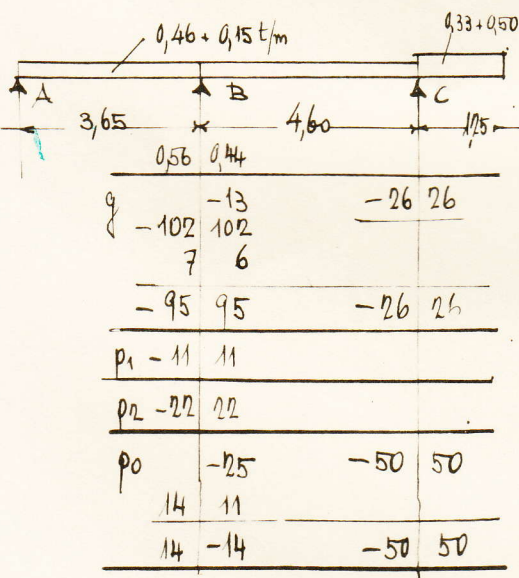 0,46 + 0,15 t/m
0,33+0,50
A B C
3,65 4,60 1,25
0,56 0,44
g -13 -26 26
-102 102
7 6
-95 95 -26 26
p1 -11 11
p2 -22 22
p0 -25 -50 50
14 11
14 -14 -50 50